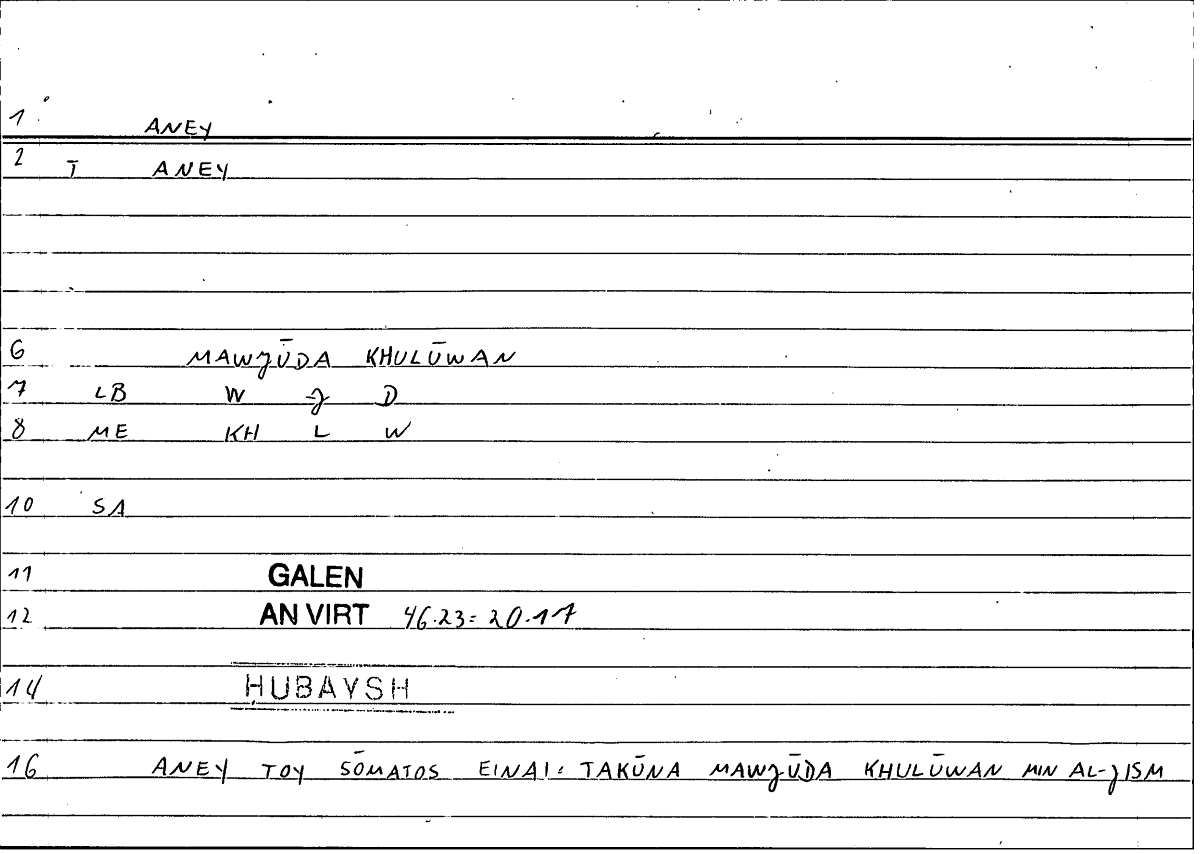 1 ANEY
2 T̄ ANEY
6 MAWJŪDA KHULŪWAN
7 LB W J D
8 ME KH L W
10 SA
11 GALEN
12 AN VIRT 46.23 = 20.17
14 ḤUBAYSH
16 ANEY TOY SŌMATOS EINAI : TAKŪNA MAWJŪDA KHULŪWAN MIN AL-JISM